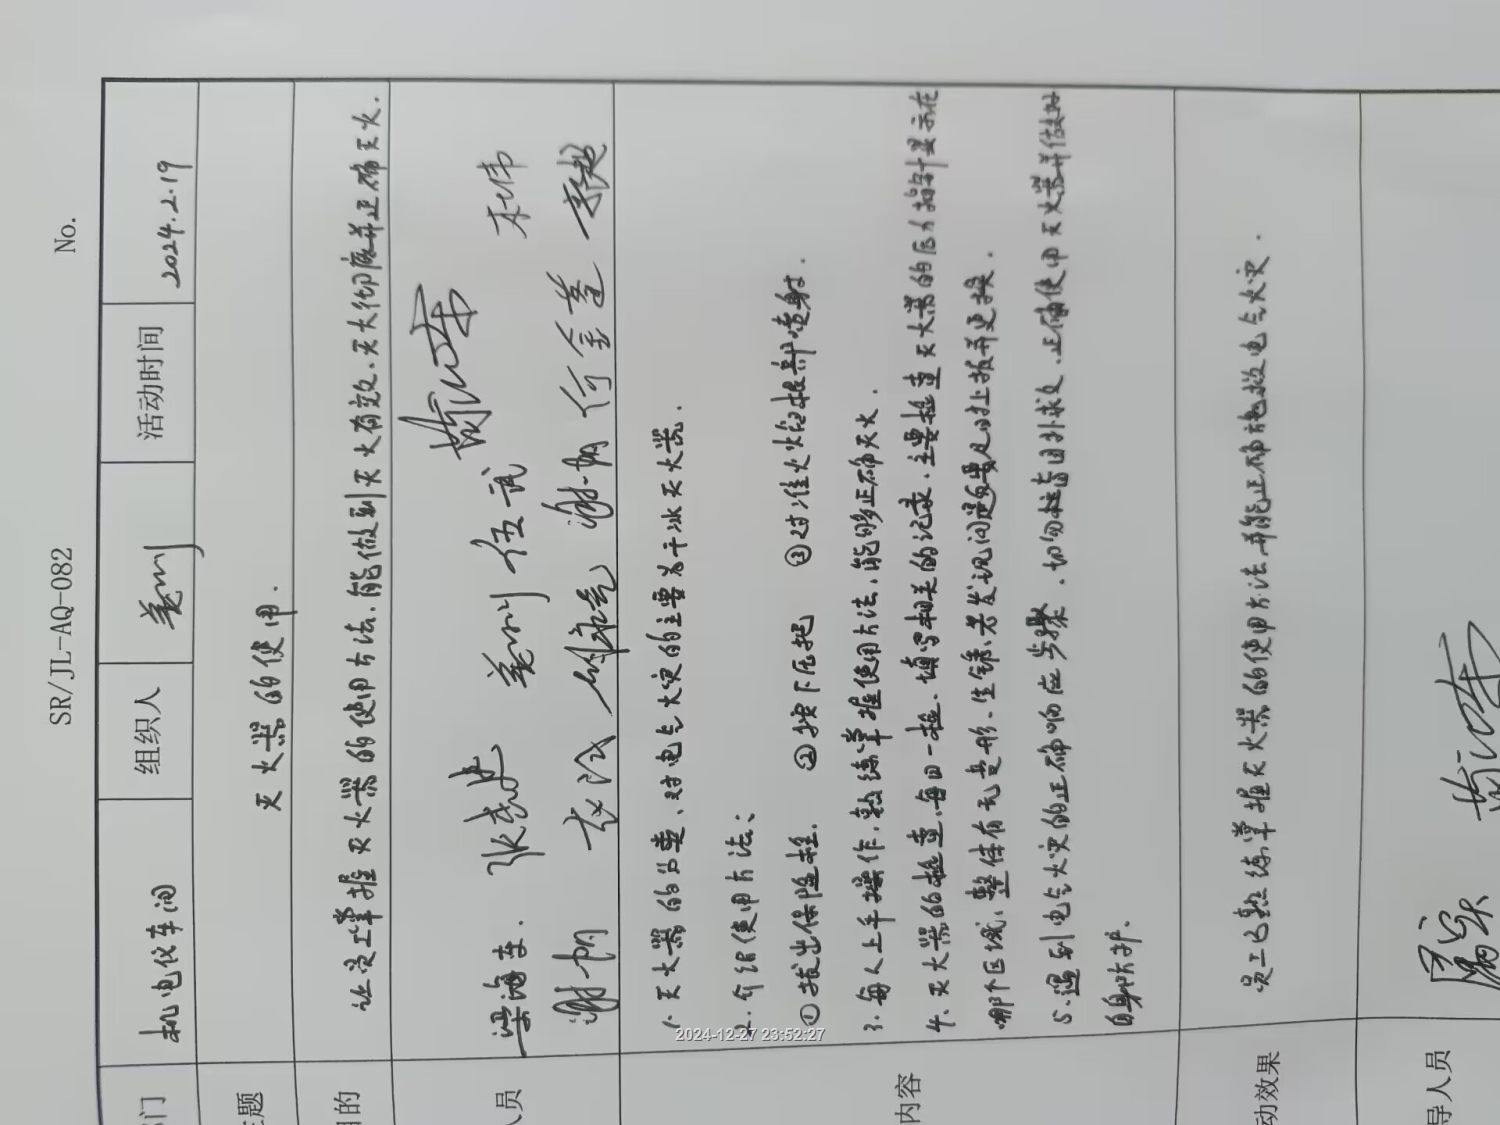 SR/JL-AQ-082 No.
部门 机电仪车间 组织人 活动时间 2024.2.19
主题 灭火器的使用.
目的 让员工掌握灭火器的使用方法,能做到灭火有效.灭火彻底并正确灭火.
人员
谢帅
内容
1. 灭火器的分类、对电气火灾的主要为干冰灭火器.
2. 介绍使用方法:
①拔出保险栓. ②按下压把 ③对准火焰根部喷射.
3. 每人上手操作,熟练掌握使用方法,能够正确灭火.
4. 灭火器的检查,每日一检、填写相关的记录,主要检查灭火器的压力指针显示在
哪个区域、整体有无变形、生锈、若发现问题要及时上报并更换.
5. 遇到电气火灾的正确响应步骤,切勿盲目扑救、正确使用灭火器并做好
自身防护.
动效果 员工已熟练掌握灭火器的使用方法,并能正确施救电气火灾.
导人员
2024-12-27 23:52:27